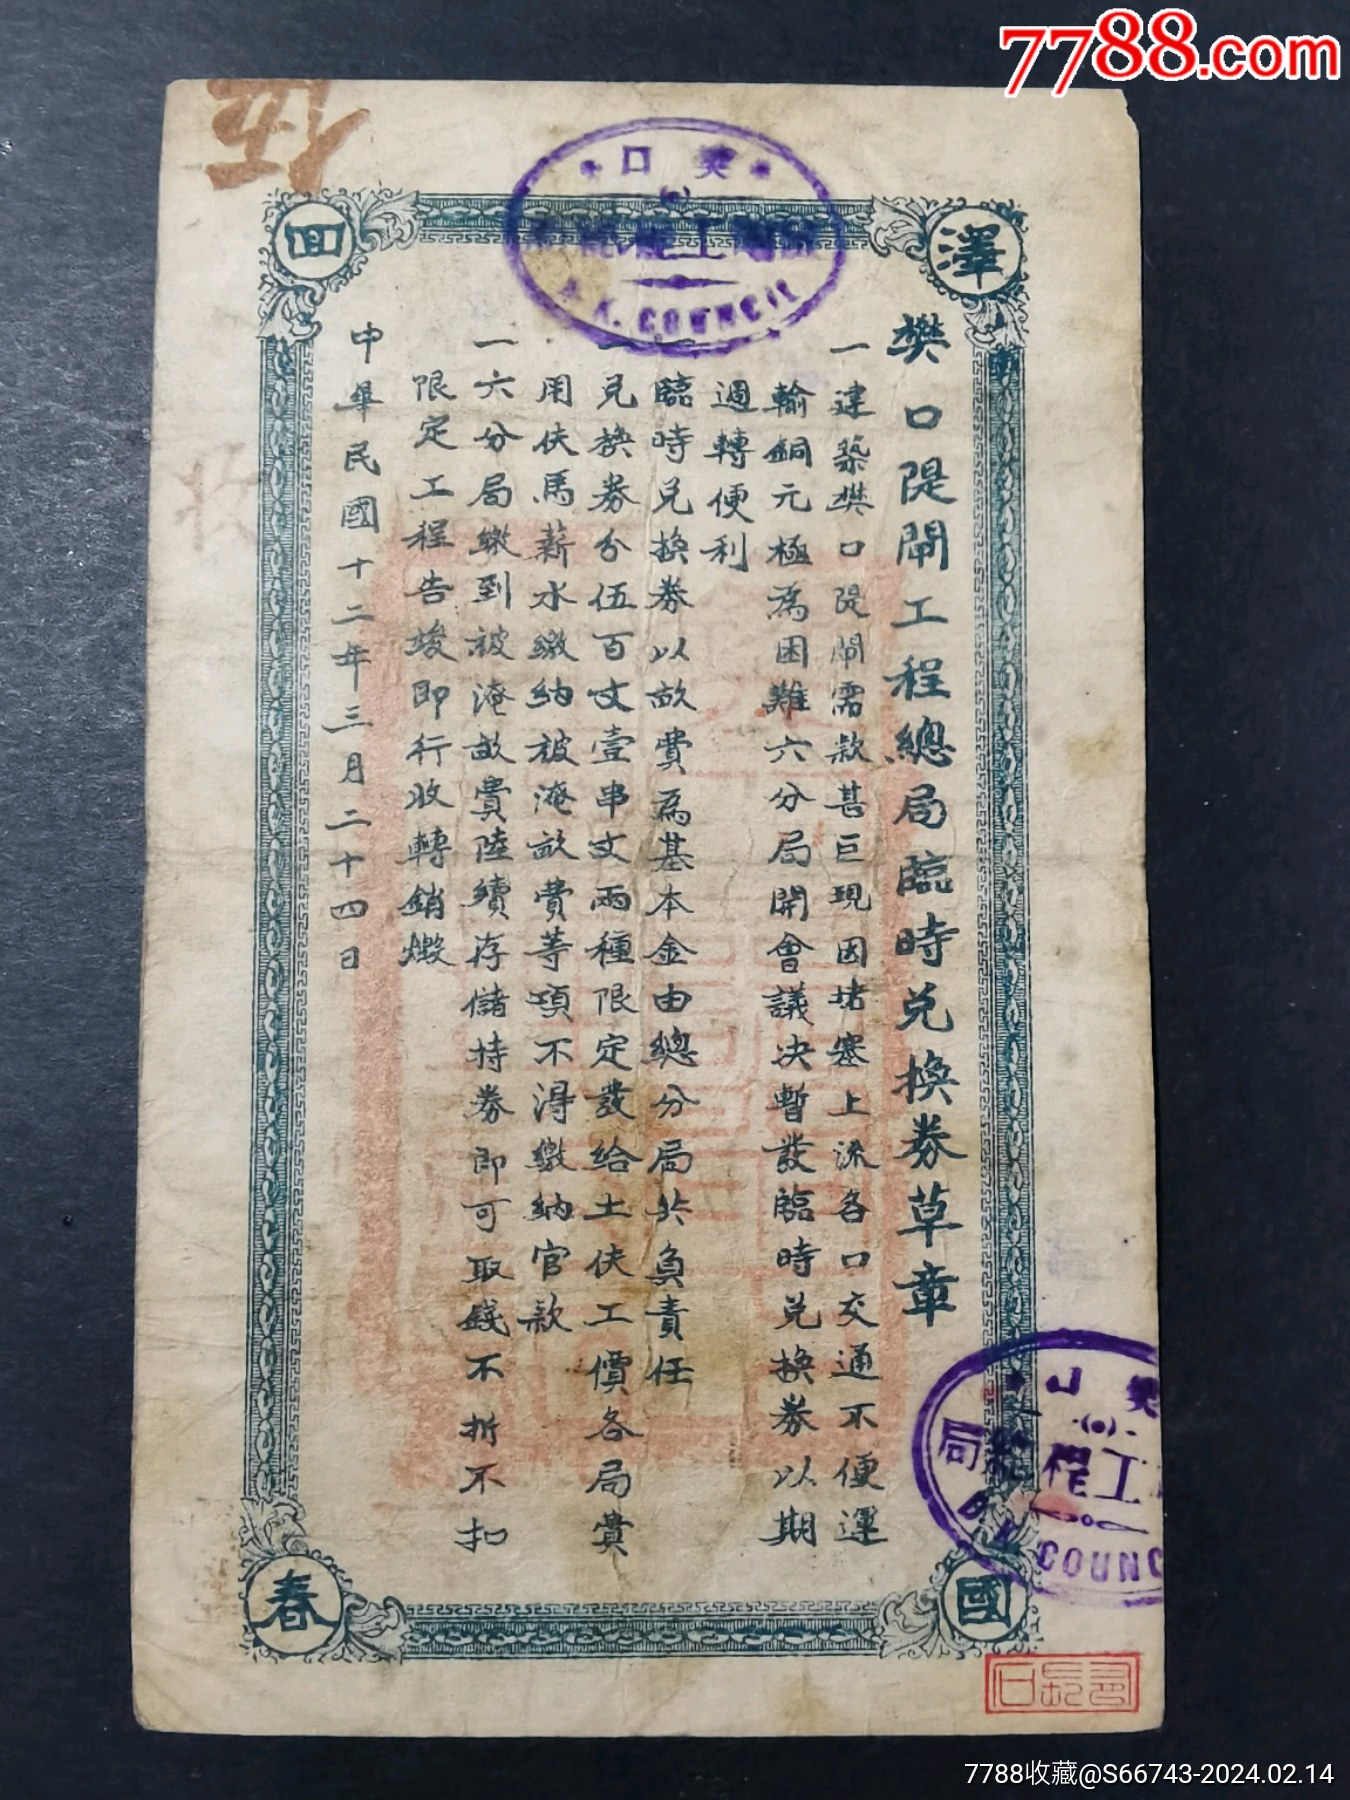 7788.com
樊口
工程
B.K. COUNCIL
澤
國
回
春
樊口隄閘工程總局臨時兑換券草章
一建築樊口隄閘需款甚巨現因堵塞上流各口交通不便運
輸銅元極為困難六分局開會議决暫發臨時兑換券以期
週轉便利
一臨時兑換券以畝費為基本金由總分局共負責任
一兑換券分伍百文壹串文兩種限定發給土伕工價各局費
用伕馬薪水繳納被淹畝費等項不得繳納官款
一六分局繳到被淹畝費陸續存儲持券即可取錢不折不扣
限定工程告竣即行收轉銷燬
中華民國十二年三月二十四日
樊口
工程總局
B.K. COUNC
7788收藏@S66743-2024.02.14